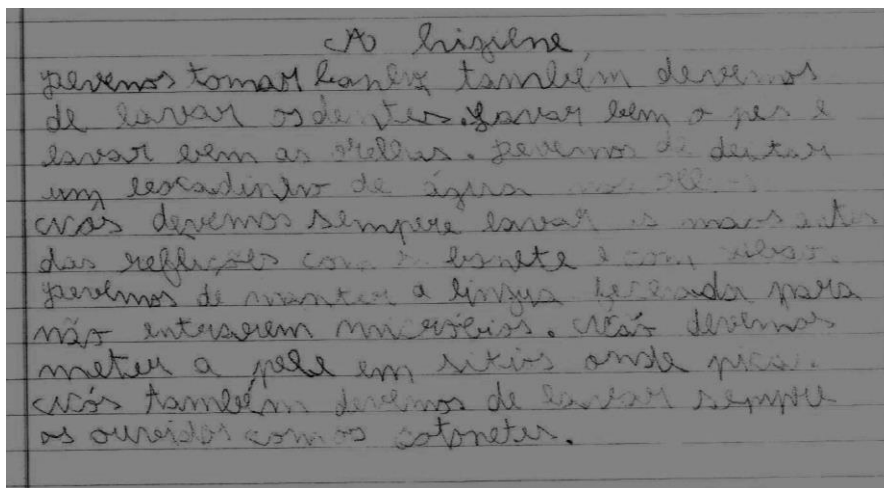 A higiene
Devemos tomar banho também devemos
de lavar os dentes. Lavar bem o pes e
lavar bem as orelhas. Devemos de deitar
um bocadinho de água
Nós devemos sempre lavar as maos antes
das refeições com e com
Devemos de manter a lingua fechada para
não entrarem micróbios. Não devemos
meter a pele em sitios onde pica.
Nós também devemos de lavar sempre
os ouvidos com os cotonetes.